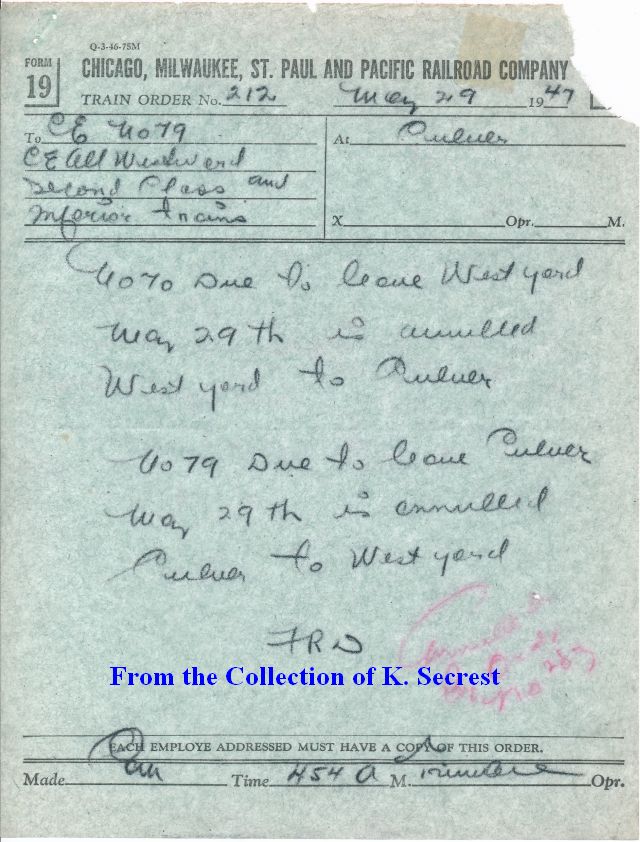 Q-3-46-75M
FORM 19
CHICAGO, MILWAUKEE, ST. PAUL AND PACIFIC RAILROAD COMPANY
TRAIN ORDER No. 212 May 29 1947
To CE No 79 At Culver
CE All Westward
Second Class and
Inferior trains
X Opr. M.
No 70 Due to leave West yard
May 29 th is annulled
West yard to Culver
No 79 Due to leave Culver
May 29 th is annulled
Culver to West yard
FRD
From the Collection of K. Secrest
EACH EMPLOYE ADDRESSED MUST HAVE A COPY OF THIS ORDER.
Made Com Time 454 A M. Opr.